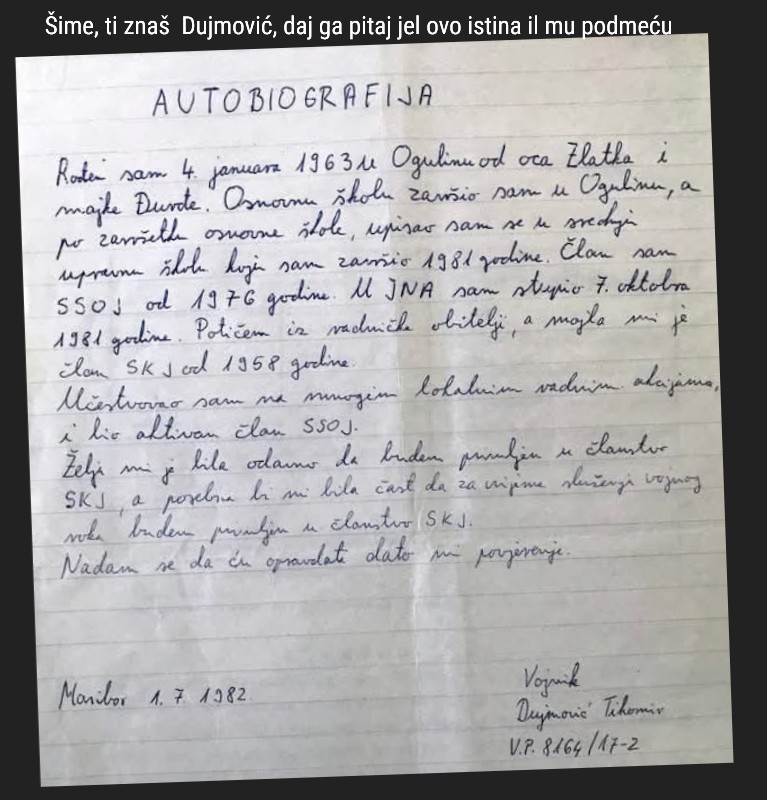 Šime, ti znaš Dujmović, daj ga pitaj jel ovo istina il mu podmeću
AUTOBIOGRAFIJA
Rođen sam 4. januara 1963 u Ogulinu od oca Zlatka i
majke Đurđe. Osnovnu školu završio sam u Ogulinu, a
po završetku osnovne škole, upisao sam se u srednju
upravnu školu koju sam završio 1981 godine. Član sam
SSOJ od 1976 godine. U JNA sam stupio 7. oktobra
1981 godine. Potičem iz radničke obitelji, a majka mi je
član SKJ od 1958 godine.
Učestvovao sam na mnogim lokalnim radnim akcijama,
i bio aktivan član SSOJ.
Želja mi je bila odavno da budem primljen u članstvo
SKJ, a posebna bi mi bila čast da za vrijeme služenja vojnog
roka budem primljen u članstvo SKJ.
Nadam se da ću opravdati dato mi povjerenje.
Maribor 1. 7. 1982.
Vojnik
Dujmović Tihomir
V.P. 8164/17-2